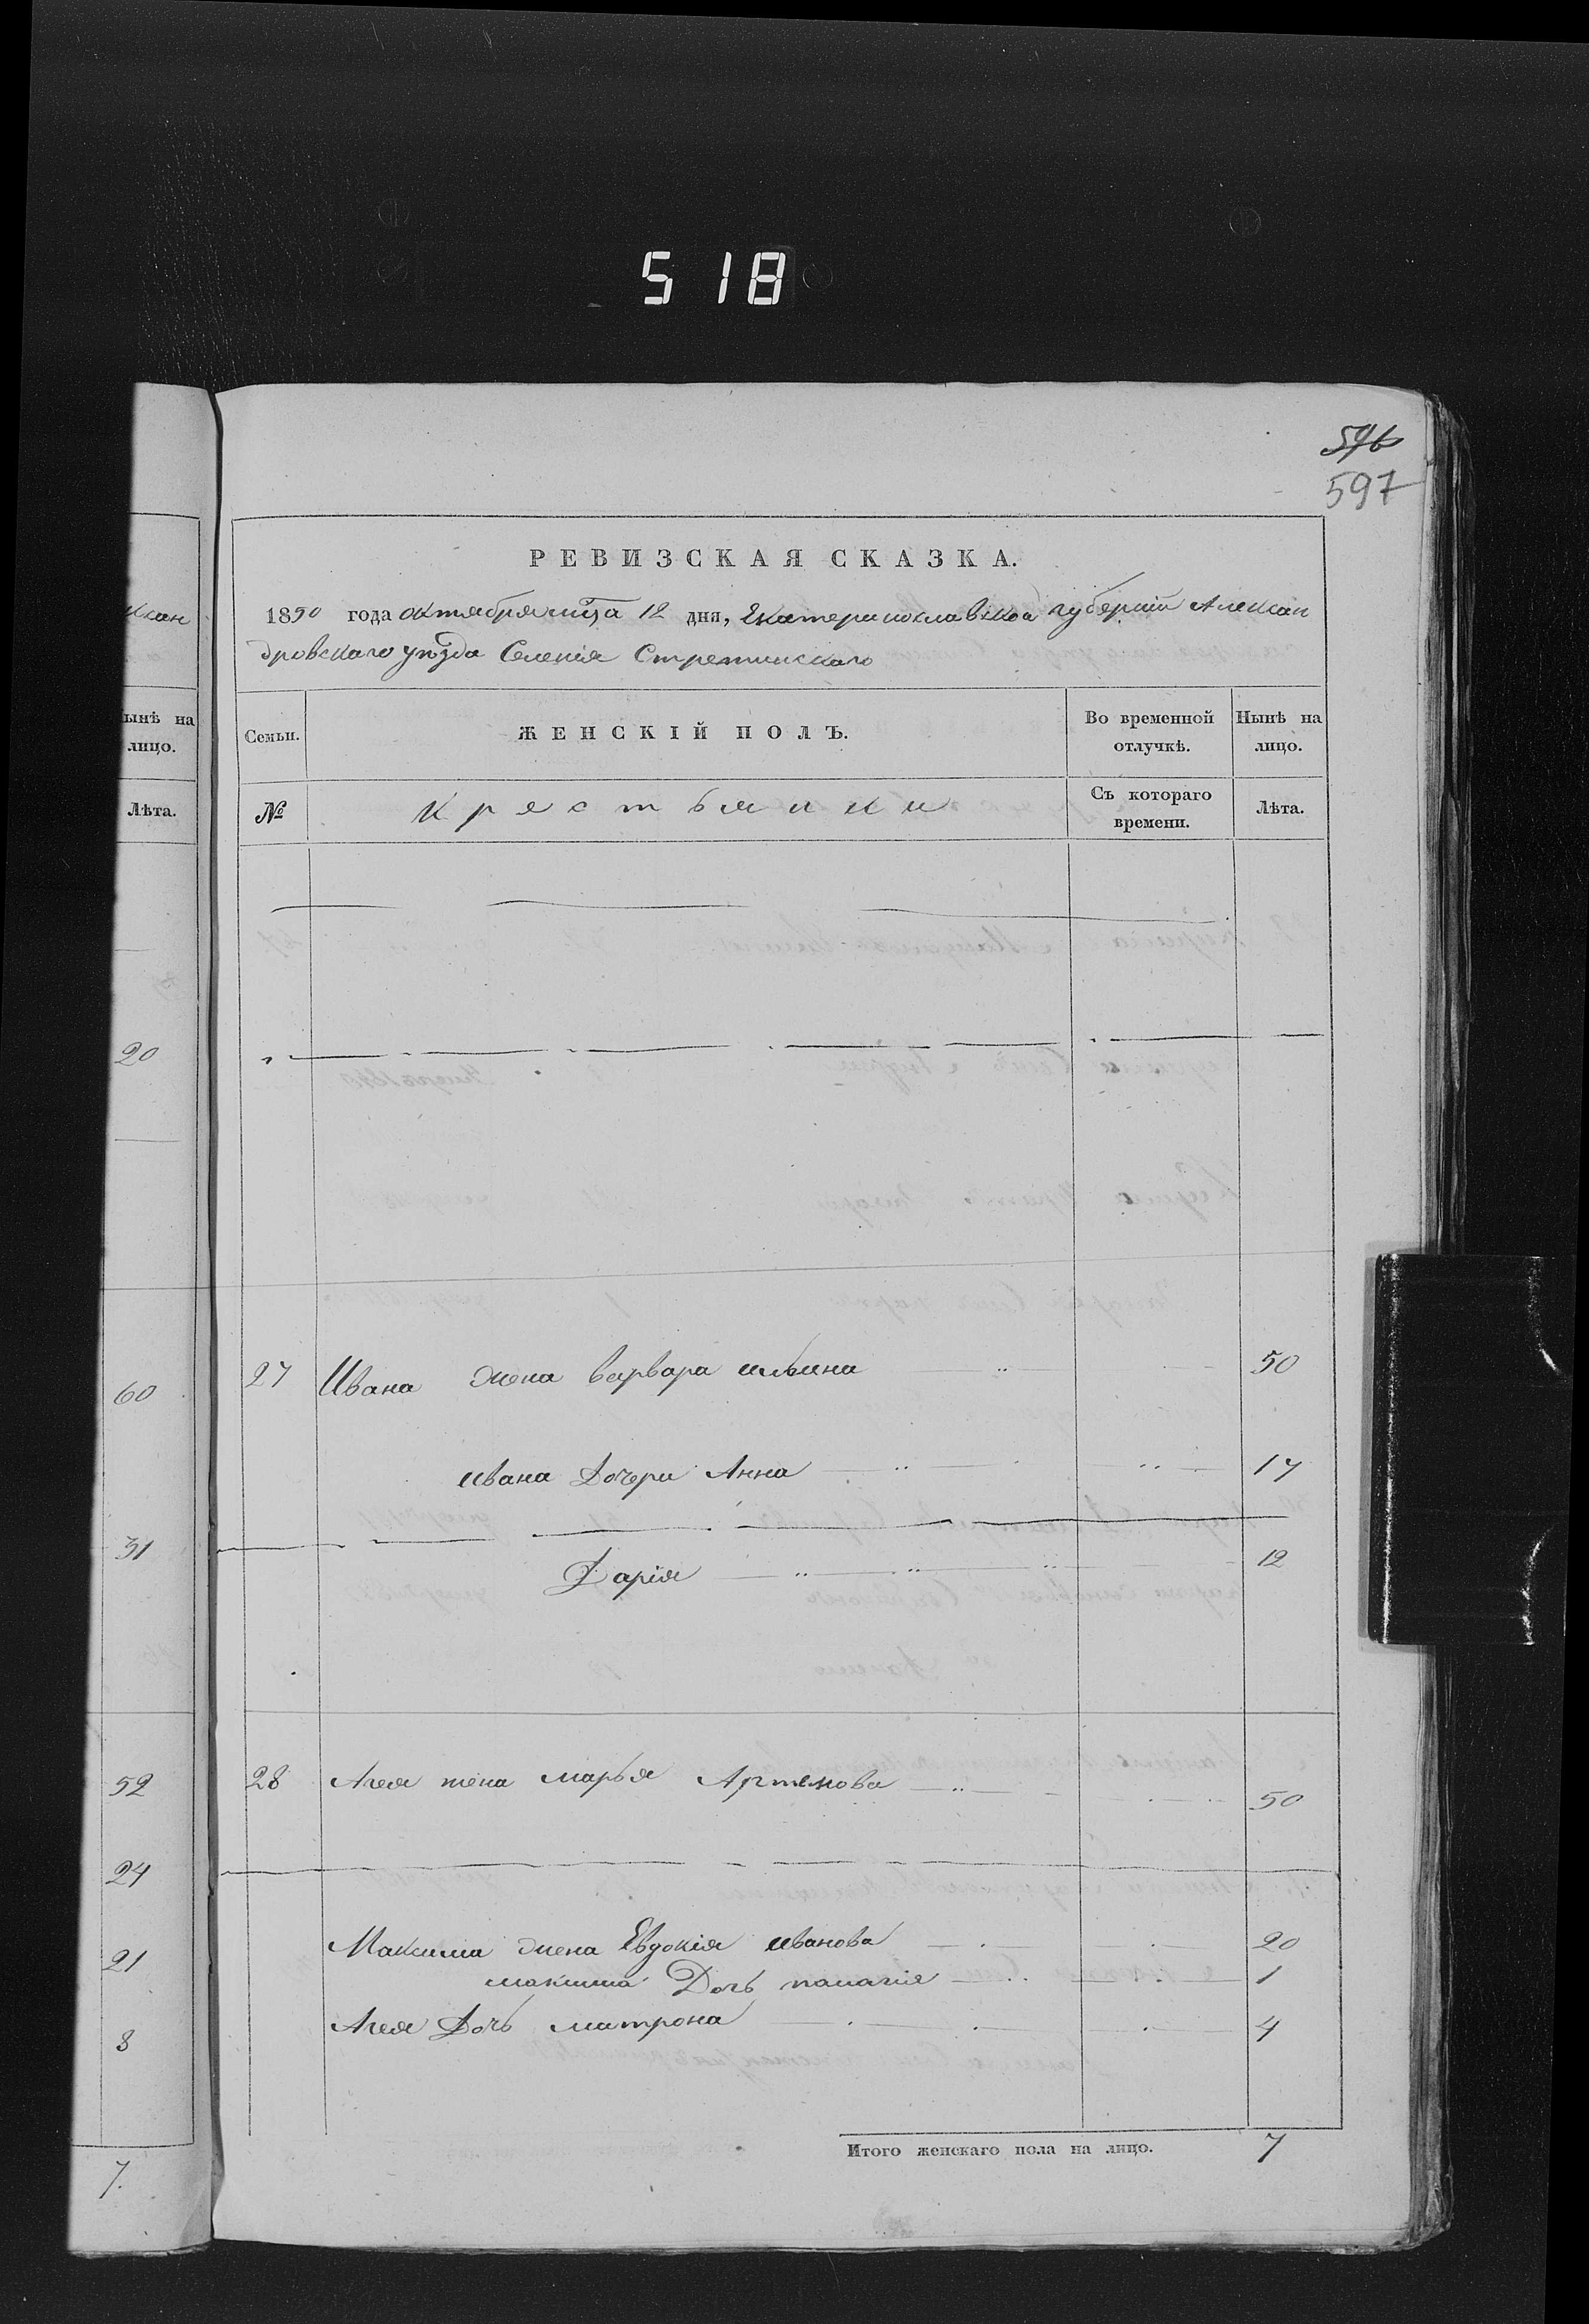 518
596
597
РЕВИЗСКАЯ СКАЗКА.
1850 года октября мца 12 дня, Екатеринославской губернии Алексан
дровскаго уѣзда Селенія Стретинскаго
Семьи.
ЖЕНСКІЙ ПОЛЪ.
Во временной отлучкѣ.
Нынѣ на лицо.
№
Крестьянки
Съ котораго времени.
Лѣта.
27 Ивана жена варвара ильина 50
ивана Дочери Анна 17
Дарія 12
28 Агея жена марья Артемова 50
Максима жена Евдокія иванова 20
максима Дочь палагія 1
Агея Дочь матрона 4
Итого женскаго пола на лицо. 7
ксан
ынѣ на
лицо.
Лѣта.
20
60
31
52
24
21
8
7.